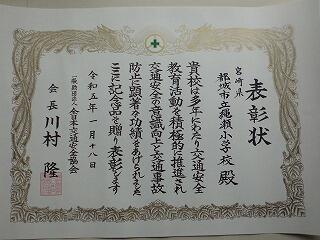 表彰状
宮崎県
都城市立縄瀬小学校 殿
貴校は多年にわたり交通安全
教育活動を積極的に推進され
交通安全の意識向上と交通事故
防止に顕著な功績をあげられました
ここに記念品を贈り表彰をします
令和五年一月十八日
一般財団法人 全日本交通安全協会
会長 川村 隆